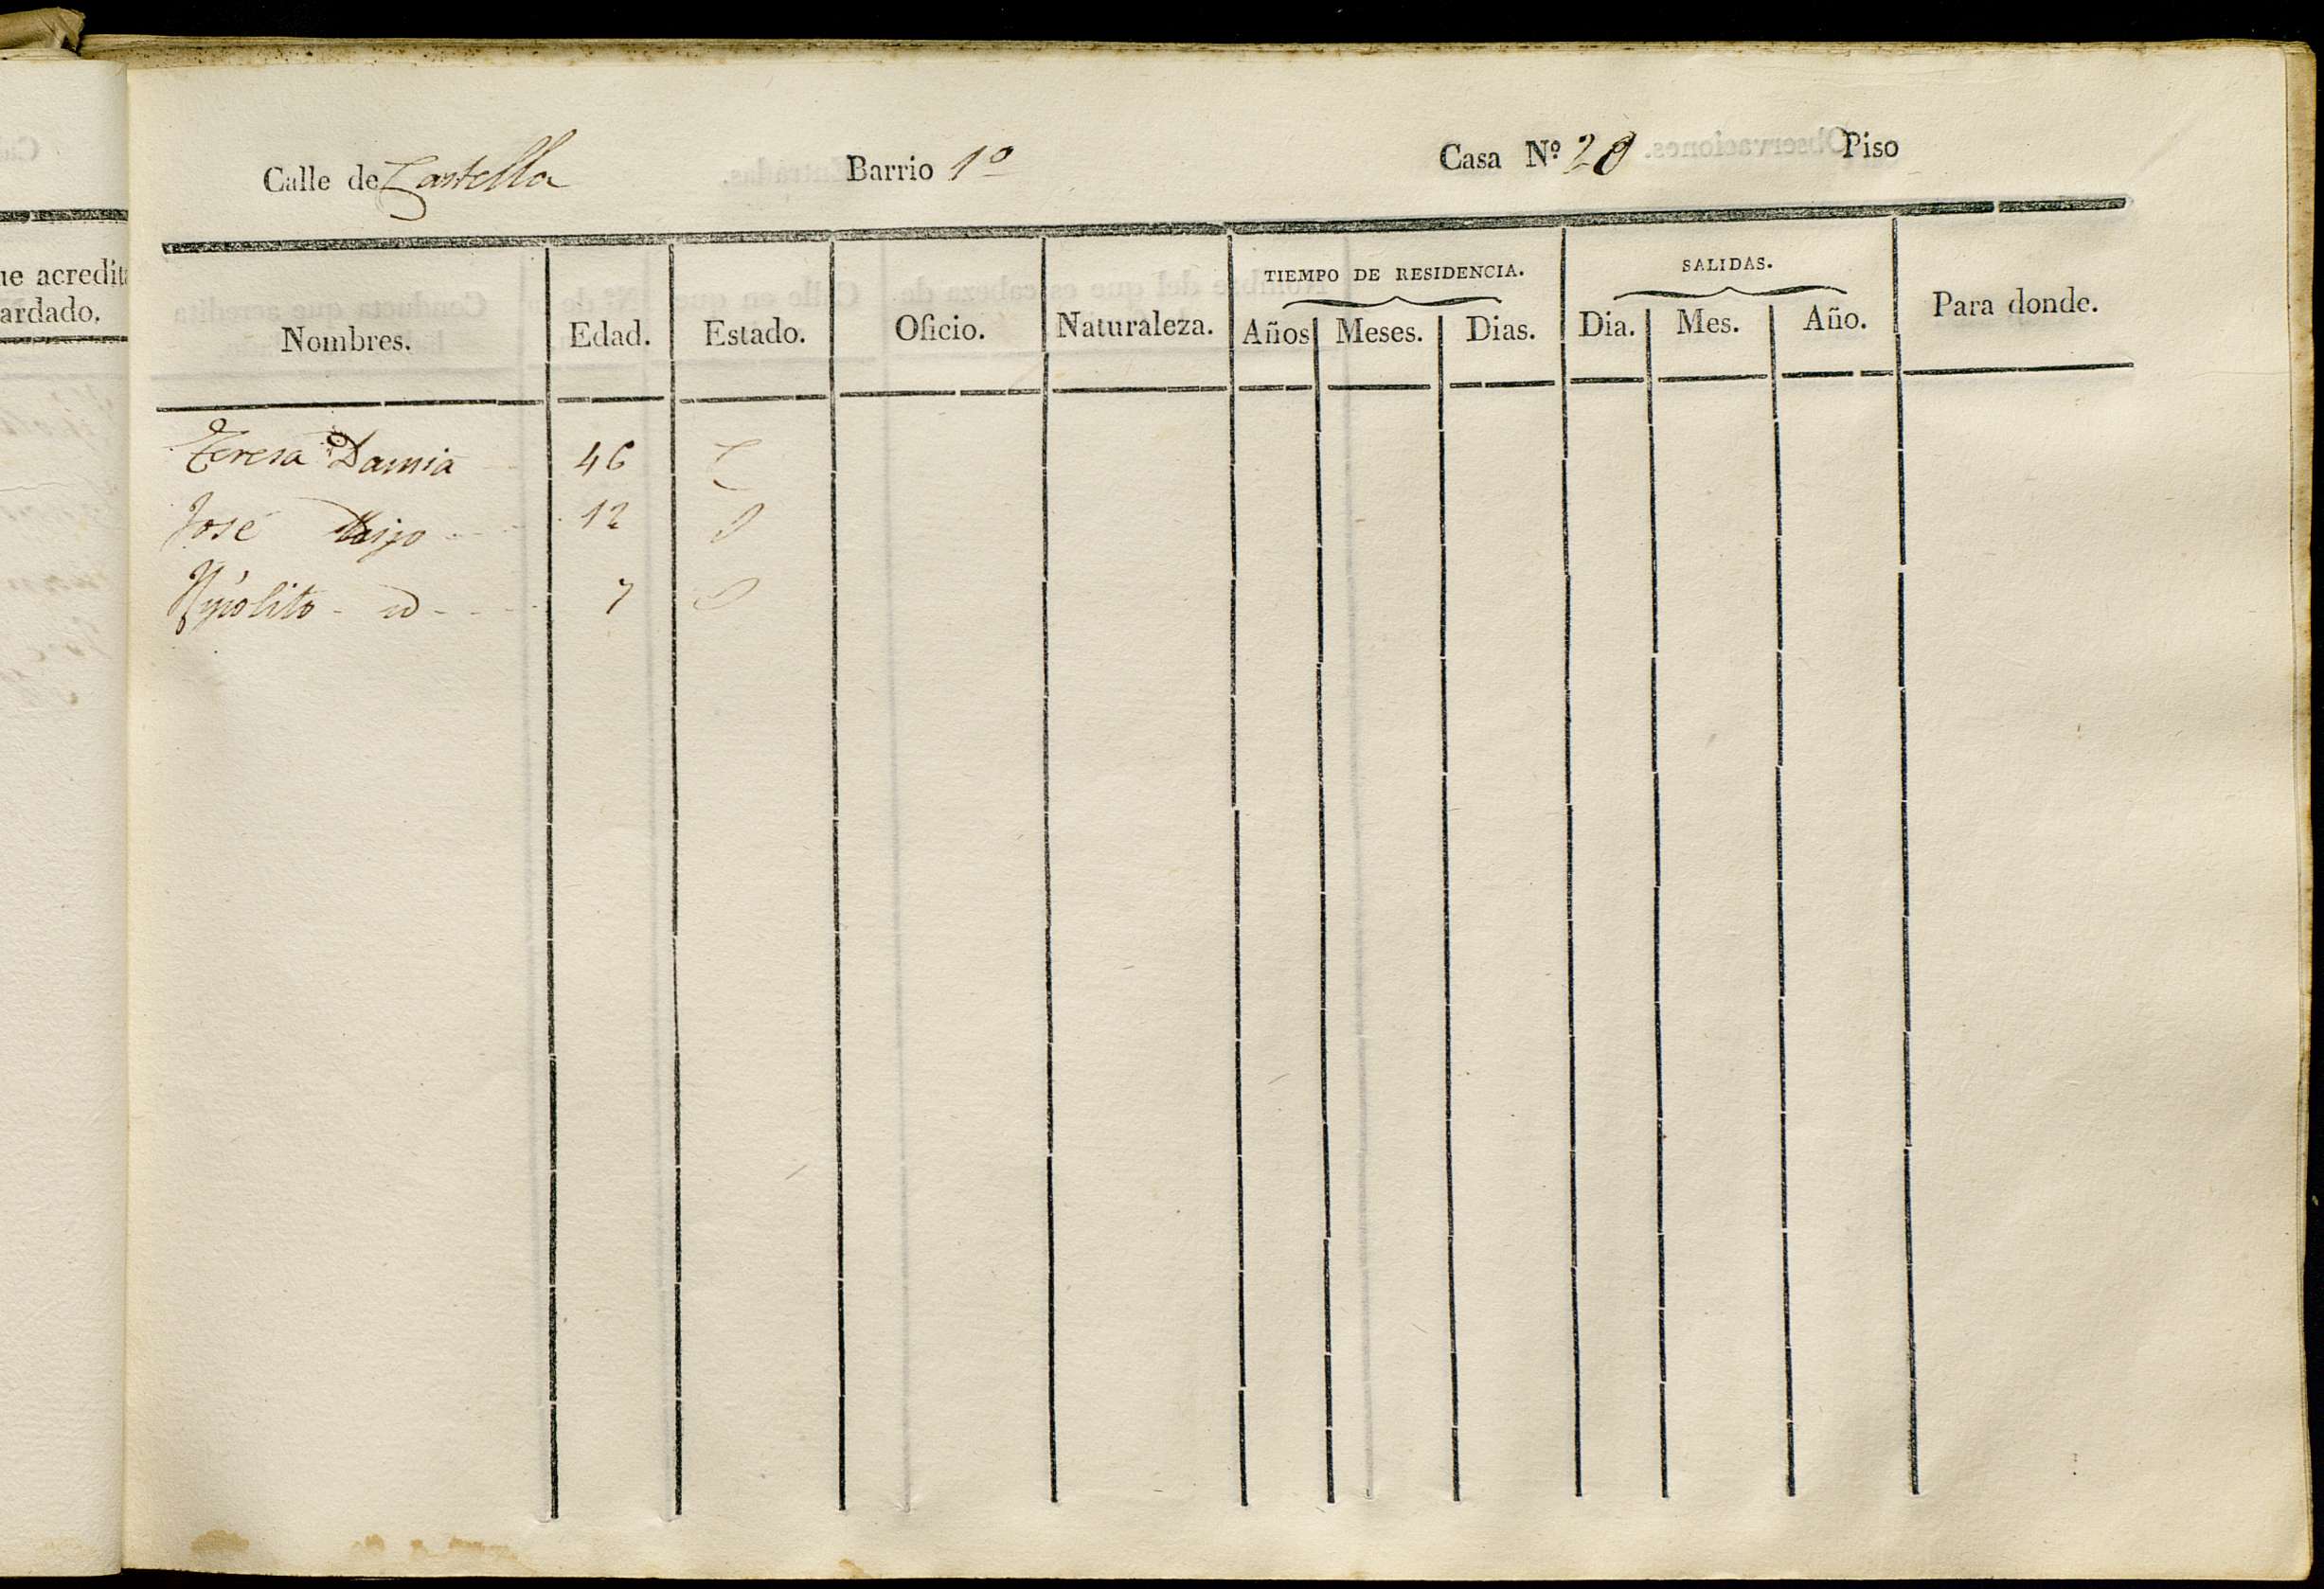 Calle de Castella Barrio 1º Casa Nº 20 Piso
TIEMPO DE RESIDENCIA. SALIDAS.
Nombres. Edad. Estado. Oficio. Naturaleza. Años Meses. Dias. Dia. Mes. Año. Para donde.
Teresa Damia 46 C
José hijo 12 S
Hipólito id 7 S
ardado.